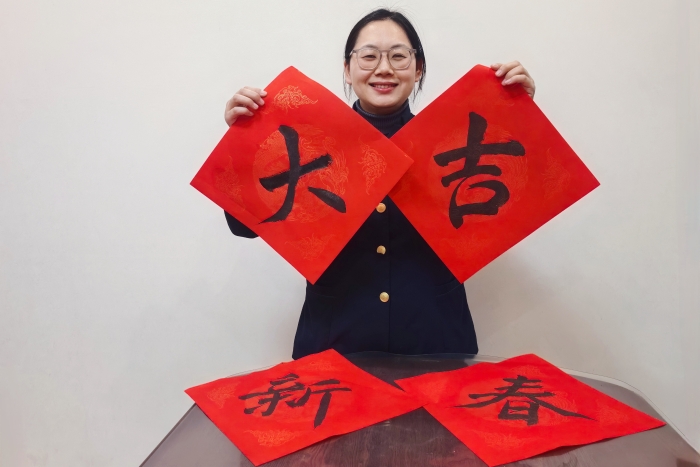 大吉
新春